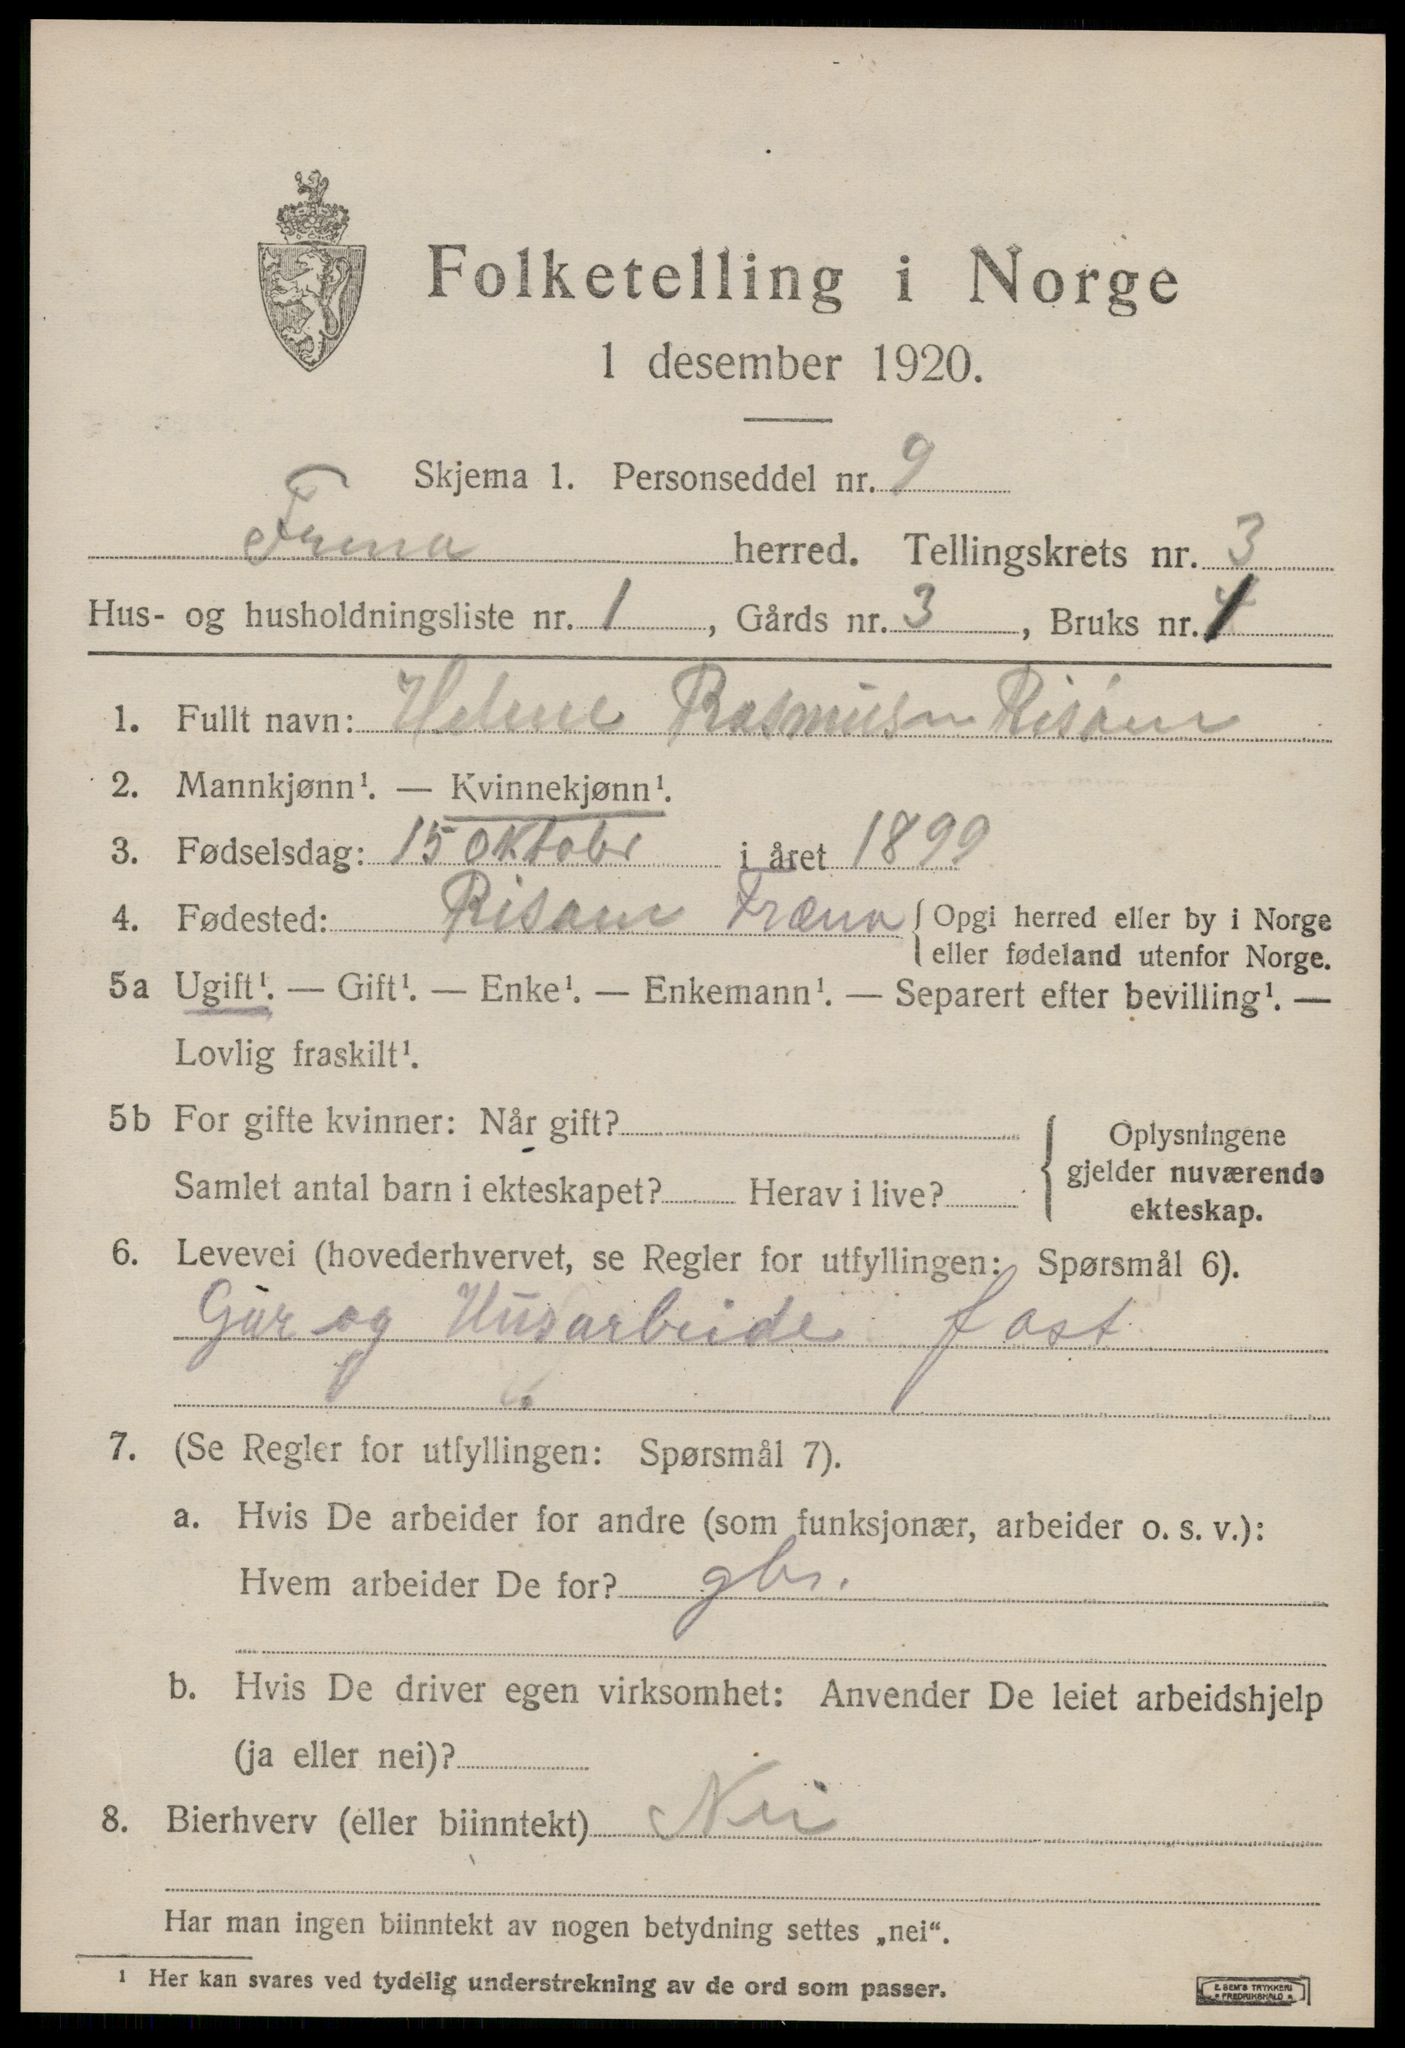 Folketelling i Norge
1 desember 1920.
Skjema 1. Personseddel nr. 9
Frena herred. Tellingskrets nr. 3
Hus- og husholdningsliste nr. 1, Gårds nr. 3, Bruks nr. 1
1. Fullt navn: Helene Rasmusn Risøen
2. Mannkjønn¹. — Kvinnekjønn¹.
3. Fødselsdag: 15 oktobr i året 1899
4. Fødested: Fræna { Opgi herred eller by i Norge
eller fødeland utenfor Norge.
5a Ugift¹. — Gift¹. — Enke¹. — Enkemann¹. — Separert efter bevilling¹. —
Lovlig fraskilt¹.
5b For gifte kvinner: Når gift? { Oplysningene
gjelder nuværende
ekteskap.
Samlet antal barn i ekteskapet? Herav i live?
6. Levevei (hovederhvervet, se Regler for utfyllingen: Spørsmål 6).
og Husarbeide fast
7. (Se Regler for utfyllingen: Spørsmål 7).
a. Hvis De arbeider for andre (som funksjonær, arbeider o. s. v.):
Hvem arbeider De for? gbr.
b. Hvis De driver egen virksomhet: Anvender De leiet arbeidshjelp
(ja eller nei)?
8. Bierhverv (eller biinntekt) Nei
Har man ingen biinntekt av nogen betydning settes „nei“.
¹ Her kan svares ved tydelig understrekning av de ord som passer.
E SEM'S TRYKKERI
FREDRIKSHALD